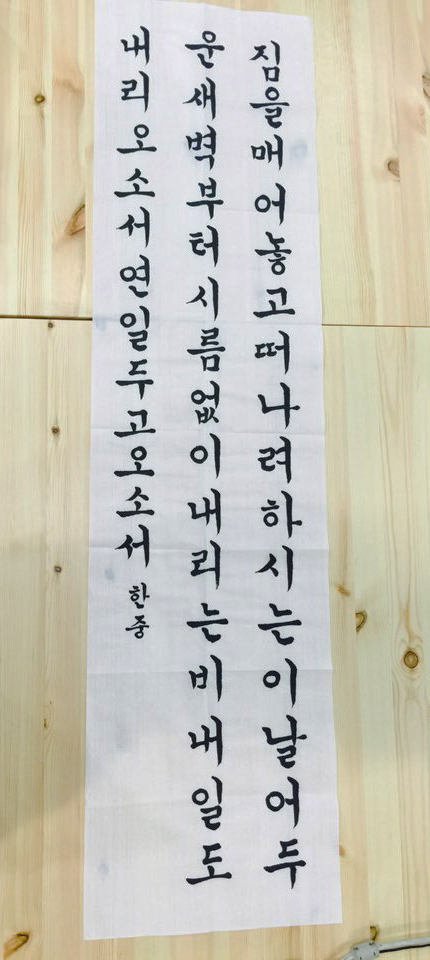 짐을매어놓고떠나려하시는이날어두
운새벽부터시름없이내리는비내일도
내리오소서연일두고오소서
한중